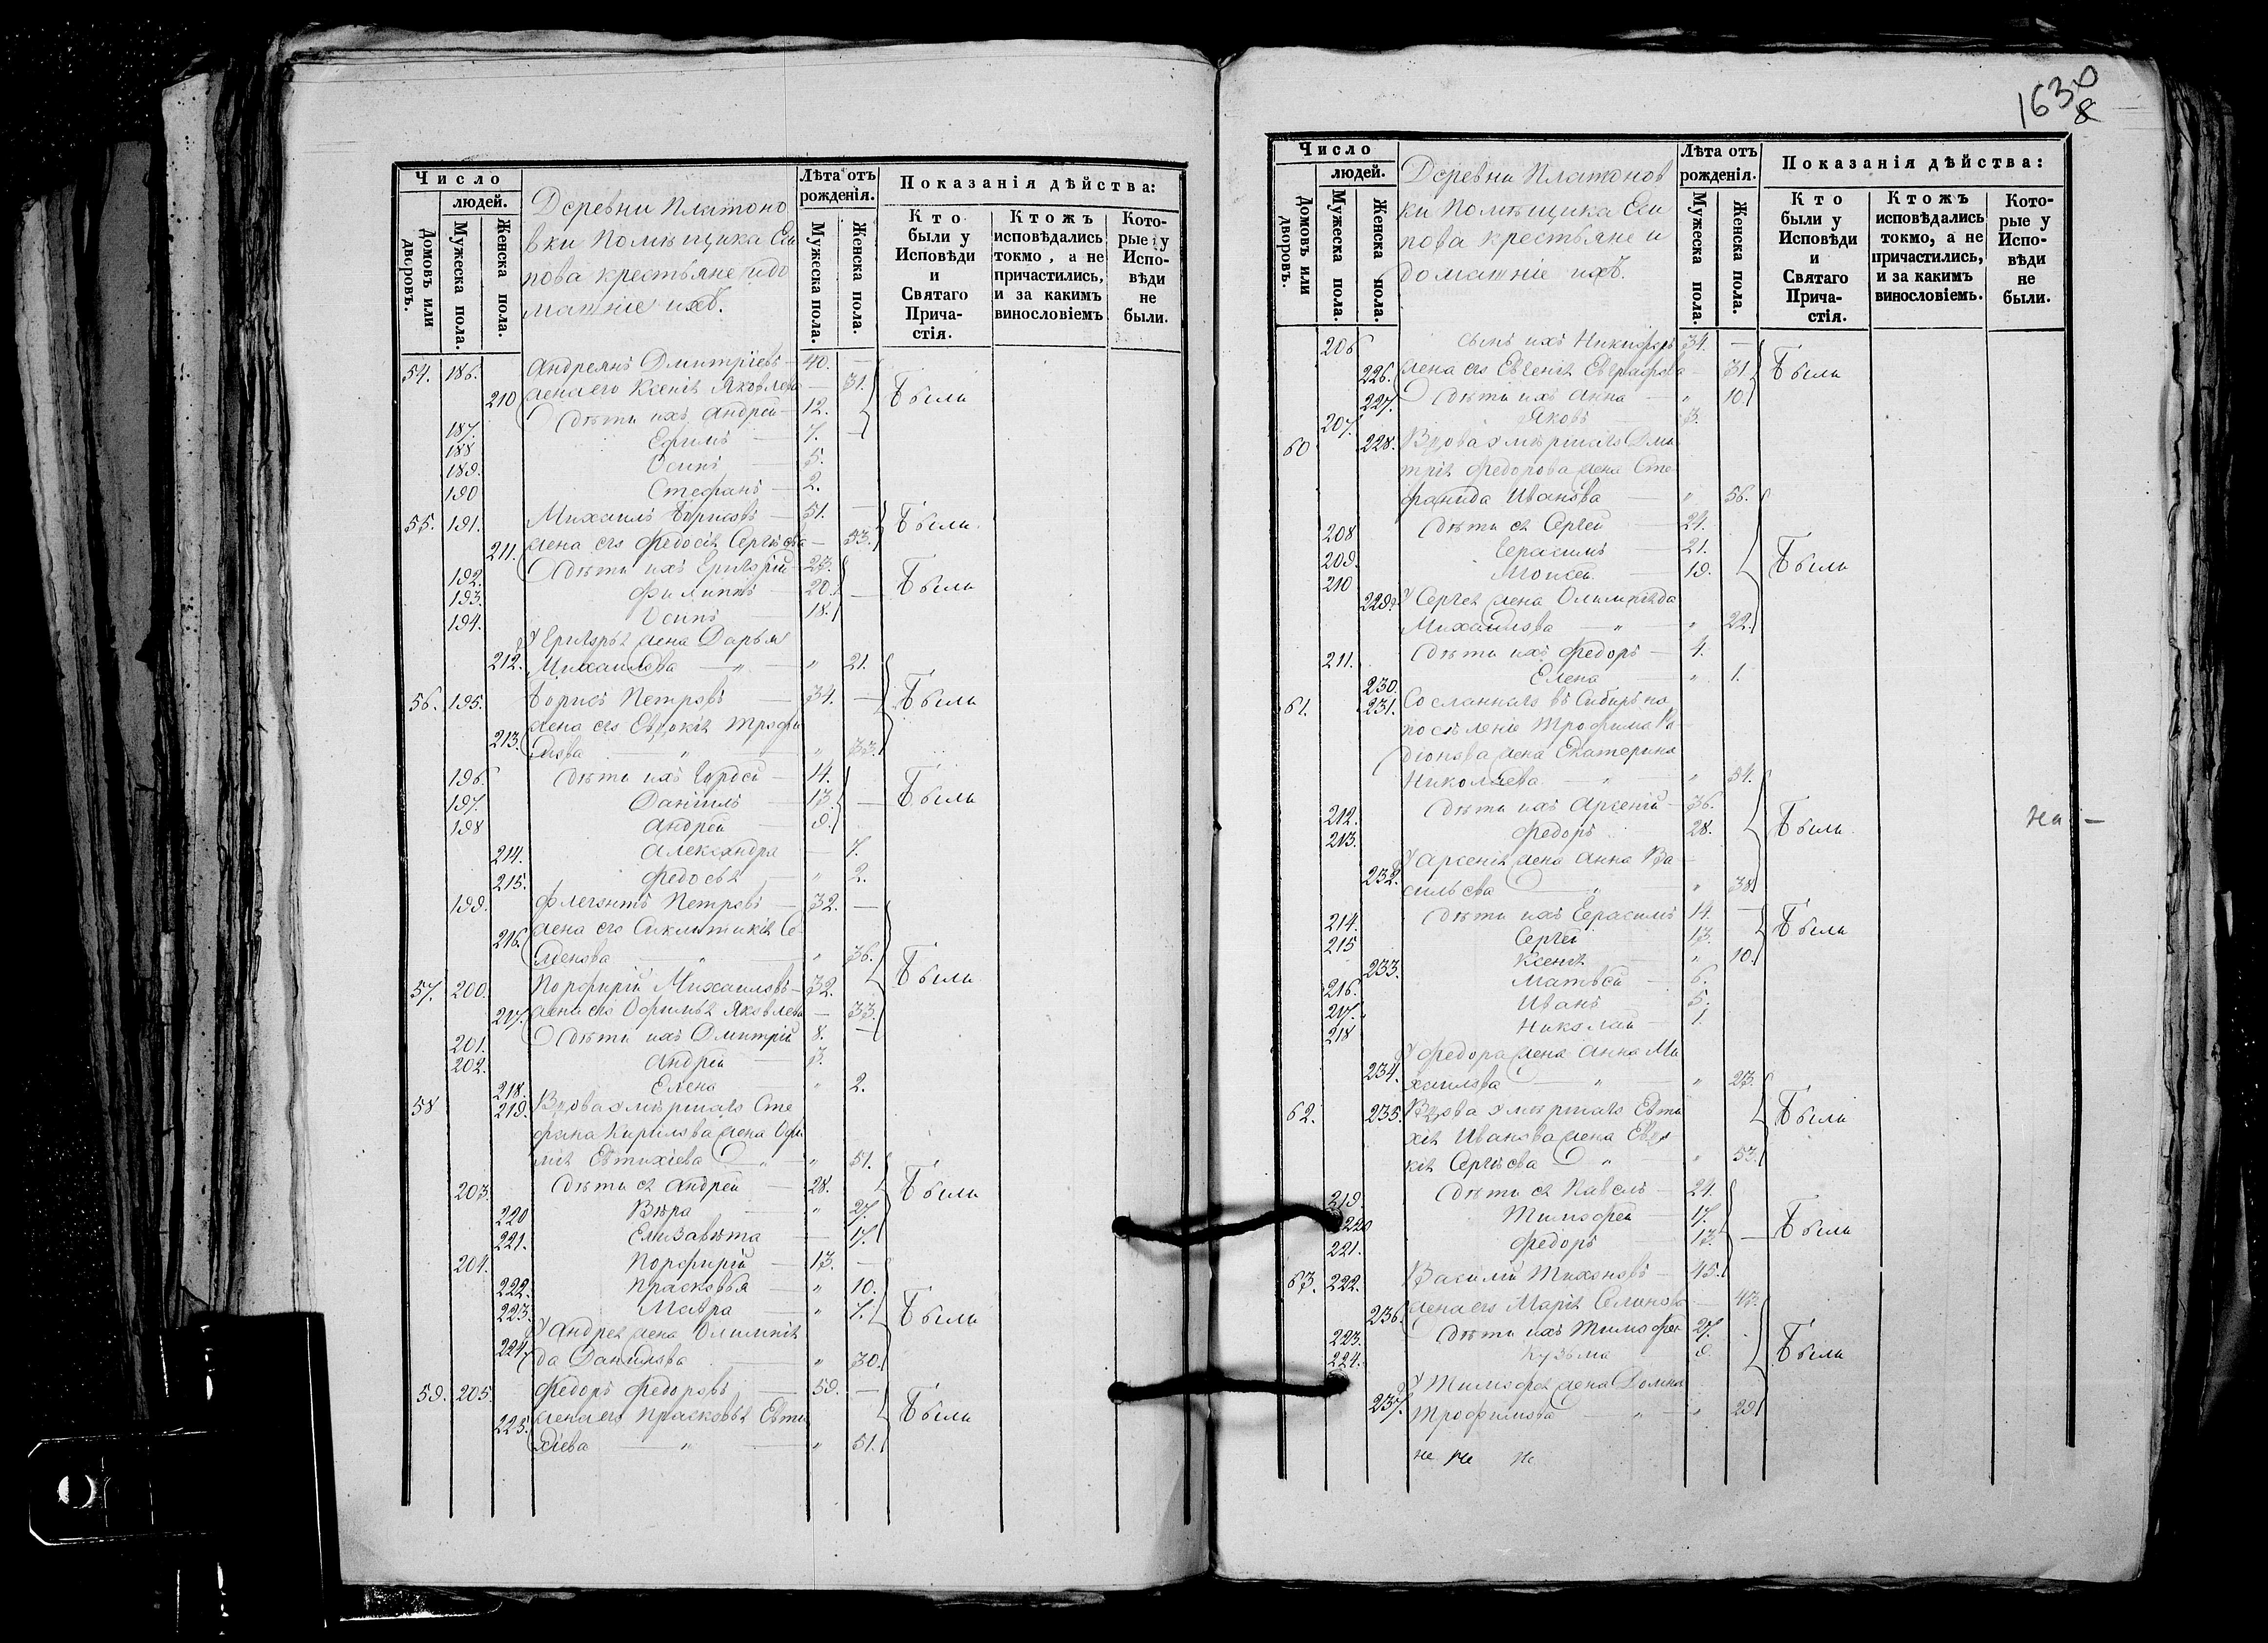 Число
людей.
Домовъ или дворовъ.
Мужеска пола.
Женска пола.
Деревни Платоно
вки Помѣщика Еси
пова крестьяне и до
машніе ихъ.
Лѣта отъ рожденія.
Мужеска пола.
Женска пола.
Показанія дѣйства:
Кто были у Исповѣди и Святаго Прича-стія.
Ктожъ исповѣдались токмо, а не причастились, и за какимъ винословіемъ
Кото-рые у Испо-вѣди не были.
54. 186. Андреянъ Дмитріевъ 40. —
210 жена его Ксенія Яковлева — 31. Были
187. дѣти ихъ Андрей 12.
188 Ефимъ 7. —
189. Осипъ 5.
190 Стефанъ 2.
55. 191. Михаилъ Борисовъ 51. — Были
211. жена его Федосія Сергѣева — 53.
192. дѣти ихъ Григорій 23.
193. Филиппъ 20. — Были
194. Осипъ 18.
У Григорія жена Дарья
212. Михайлова — „ — „ 21.
56. 195. Борисъ Петровъ 34. — Были
жена его Евдокія Трофи
213. мова „ „ 33.
196 дѣти ихъ Гордей 14.
197. Даніилъ 13. — Были
198 Андрей 9.
214. Александра — 7.
215. Федосья „ 2.
199. Флегонтъ Петровъ 32. —
216. жена его Сиклитикія Се
менова „ „ 36.
Были
57. 200. Порфирій Михайловъ 32.
217. жена его Офимья Яковлева — 33.
201. дѣти ихъ Дмитрій 8. —
202. Андрей 3.
218. Елена „ 2.
58 219. Вдова умершаго Сте
фана Кирилова жена Офи
мія Евтихіева „ „ 51.
203. дѣти ея Андрей 28. Были
220 Вѣра „ 27.
221. Елизавѣта — 17.
204. Порфирій 13. —
222. Прасковья „ 10.
223. Мавра „ 7. Были
У Андрея жена Олимпія
224. да Данилова „ 30.
59. 205. Федоръ Федоровъ 59. —
225. жена его Прасковья Евти Были
хіева „ „ 51.
1630
8
Число
людей.
Домовъ или дворовъ.
Мужеска пола.
Женска пола.
Деревни Платонов
ки Помѣщика Еси
пова крестьяне и
домашніе ихъ.
Лѣта отъ рожденія.
Мужеска пола.
Женска пола.
Показанія дѣйства:
Кто были у Исповѣди и Святаго Прича-стія.
Ктожъ исповѣдались токмо, а не причастились, и за какимъ винословіемъ.
Кото-рые у Испо-вѣди не были.
206 сынъ ихъ Никифоръ 34. —
226. жена его Евгенія Евграфова 31 Были
227. дѣти ихъ Анна „ 10.
207. Яковъ 3.
60 228. Вдова умершаго Дми
трія Федорова жена Сте
фанида Иванова „ 56.
208 дѣти ея Сергей 24.
209. Герасимъ 21.
210 Моисей 19. Были
229. У Сергея жена Олимпіада
Михайлова „ „ 22.
211. дѣти ихъ Федоръ 4.
230. Елена „ 1.
61. 231. Сосланнаго въ Сибирь на
поселеніе Трофима Ро
діонова жена Екатерина
Николаева „ „ 54.
212. дѣти ихъ Арсеній 36.
213. Федоръ 28. Были
У Арсенія жена Анна Ва
232. сильева „ „ 38
214. дѣти ихъ Герасимъ 14. —
215 Сергей 13. Были
233. Ксенія „ 10.
216. Матвей 6.
217. Иванъ 5.
218 Николай 1.
У Федора жена Анна Ми
234. хайлова „ „ 23.
62. 235. Вдова умершаго Евти Были
хія Иванова жена Евдо
кія Сергѣева „ „ 53.
219. дѣти ея Павелъ 24.
220 Тимофей 17. Были
221. Федоръ 13. —
63. 222. Василій Тихоновъ 45.
236. жена его Марія Семенова 43.
223. дѣти ихъ Тимофей 27.
224. Кузьма 9. Были
У Тимофея жена Домна
237. Трофимова „ „ 29
не не